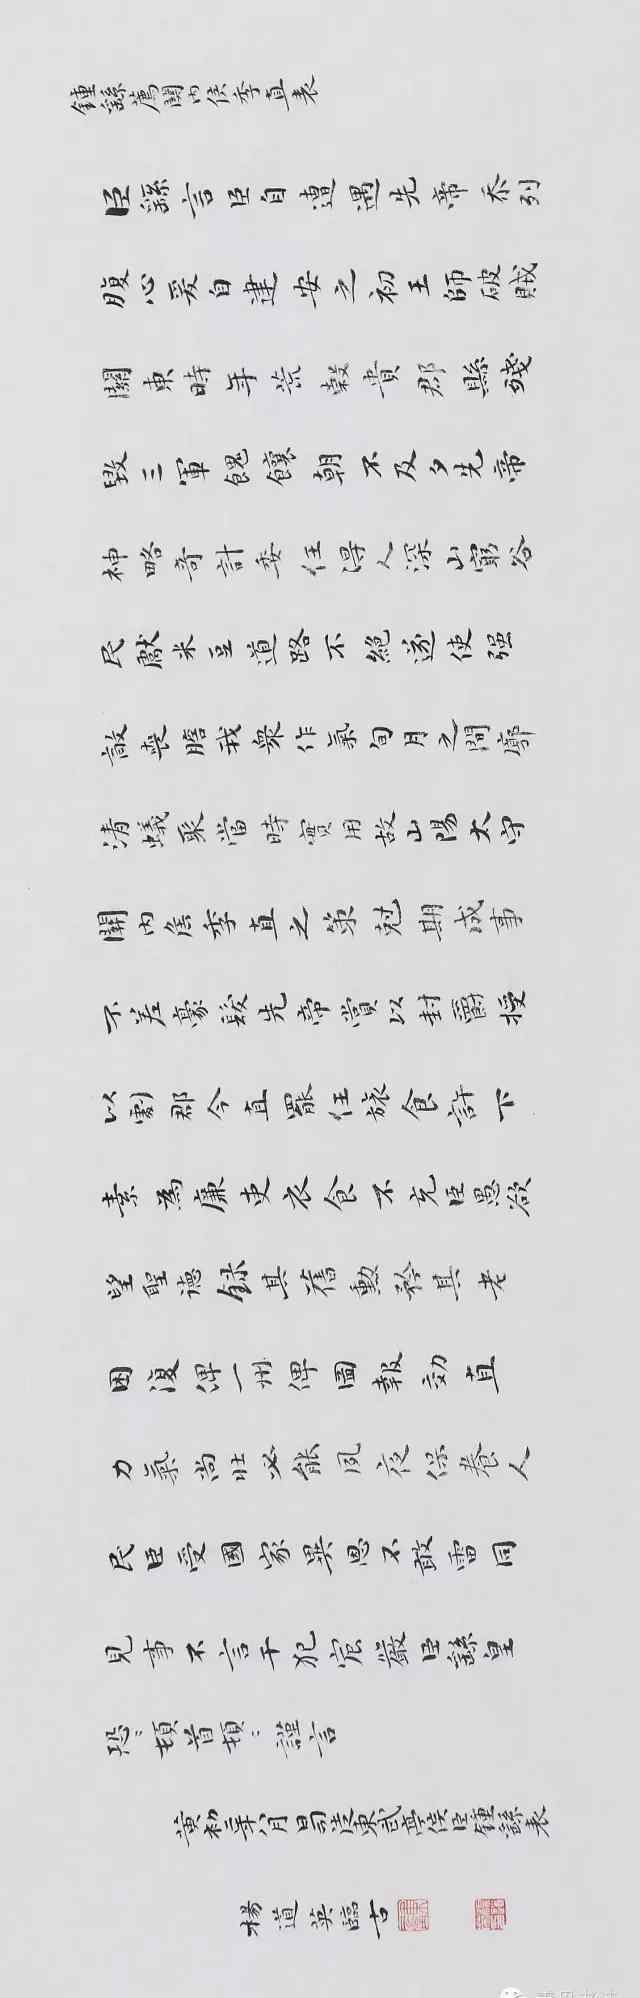 鍾繇薦關內侯季直表
臣繇言臣自遭遇先帝忝列
腹心爰自建安之初王師破賊
關東時年荒穀貴郡縣殘
毀三軍餽饟朝不及夕先帝
神略奇計委任得人深山窮谷
民獻米豆道路不絕遂使强
敵喪膽我衆作氣旬月之間廓
清蟻聚當時實用故山陽太守
關內侯季直之策尅期成事
不差豪髮先帝賞以封爵授
以劇郡今直罷任旅食許下
素為廉吏衣食不充臣愚欲
望聖德錄其舊勳矜其老
困復俾一州俾圖報効直
力氣尚壯必能夙夜保養人
民臣受國家異恩不敢雷同
見事不言干犯宸嚴臣繇皇
恐〻頓首頓〻謹言
黃初二年八月司徒東武亭侯臣鍾繇表
楊道英臨古